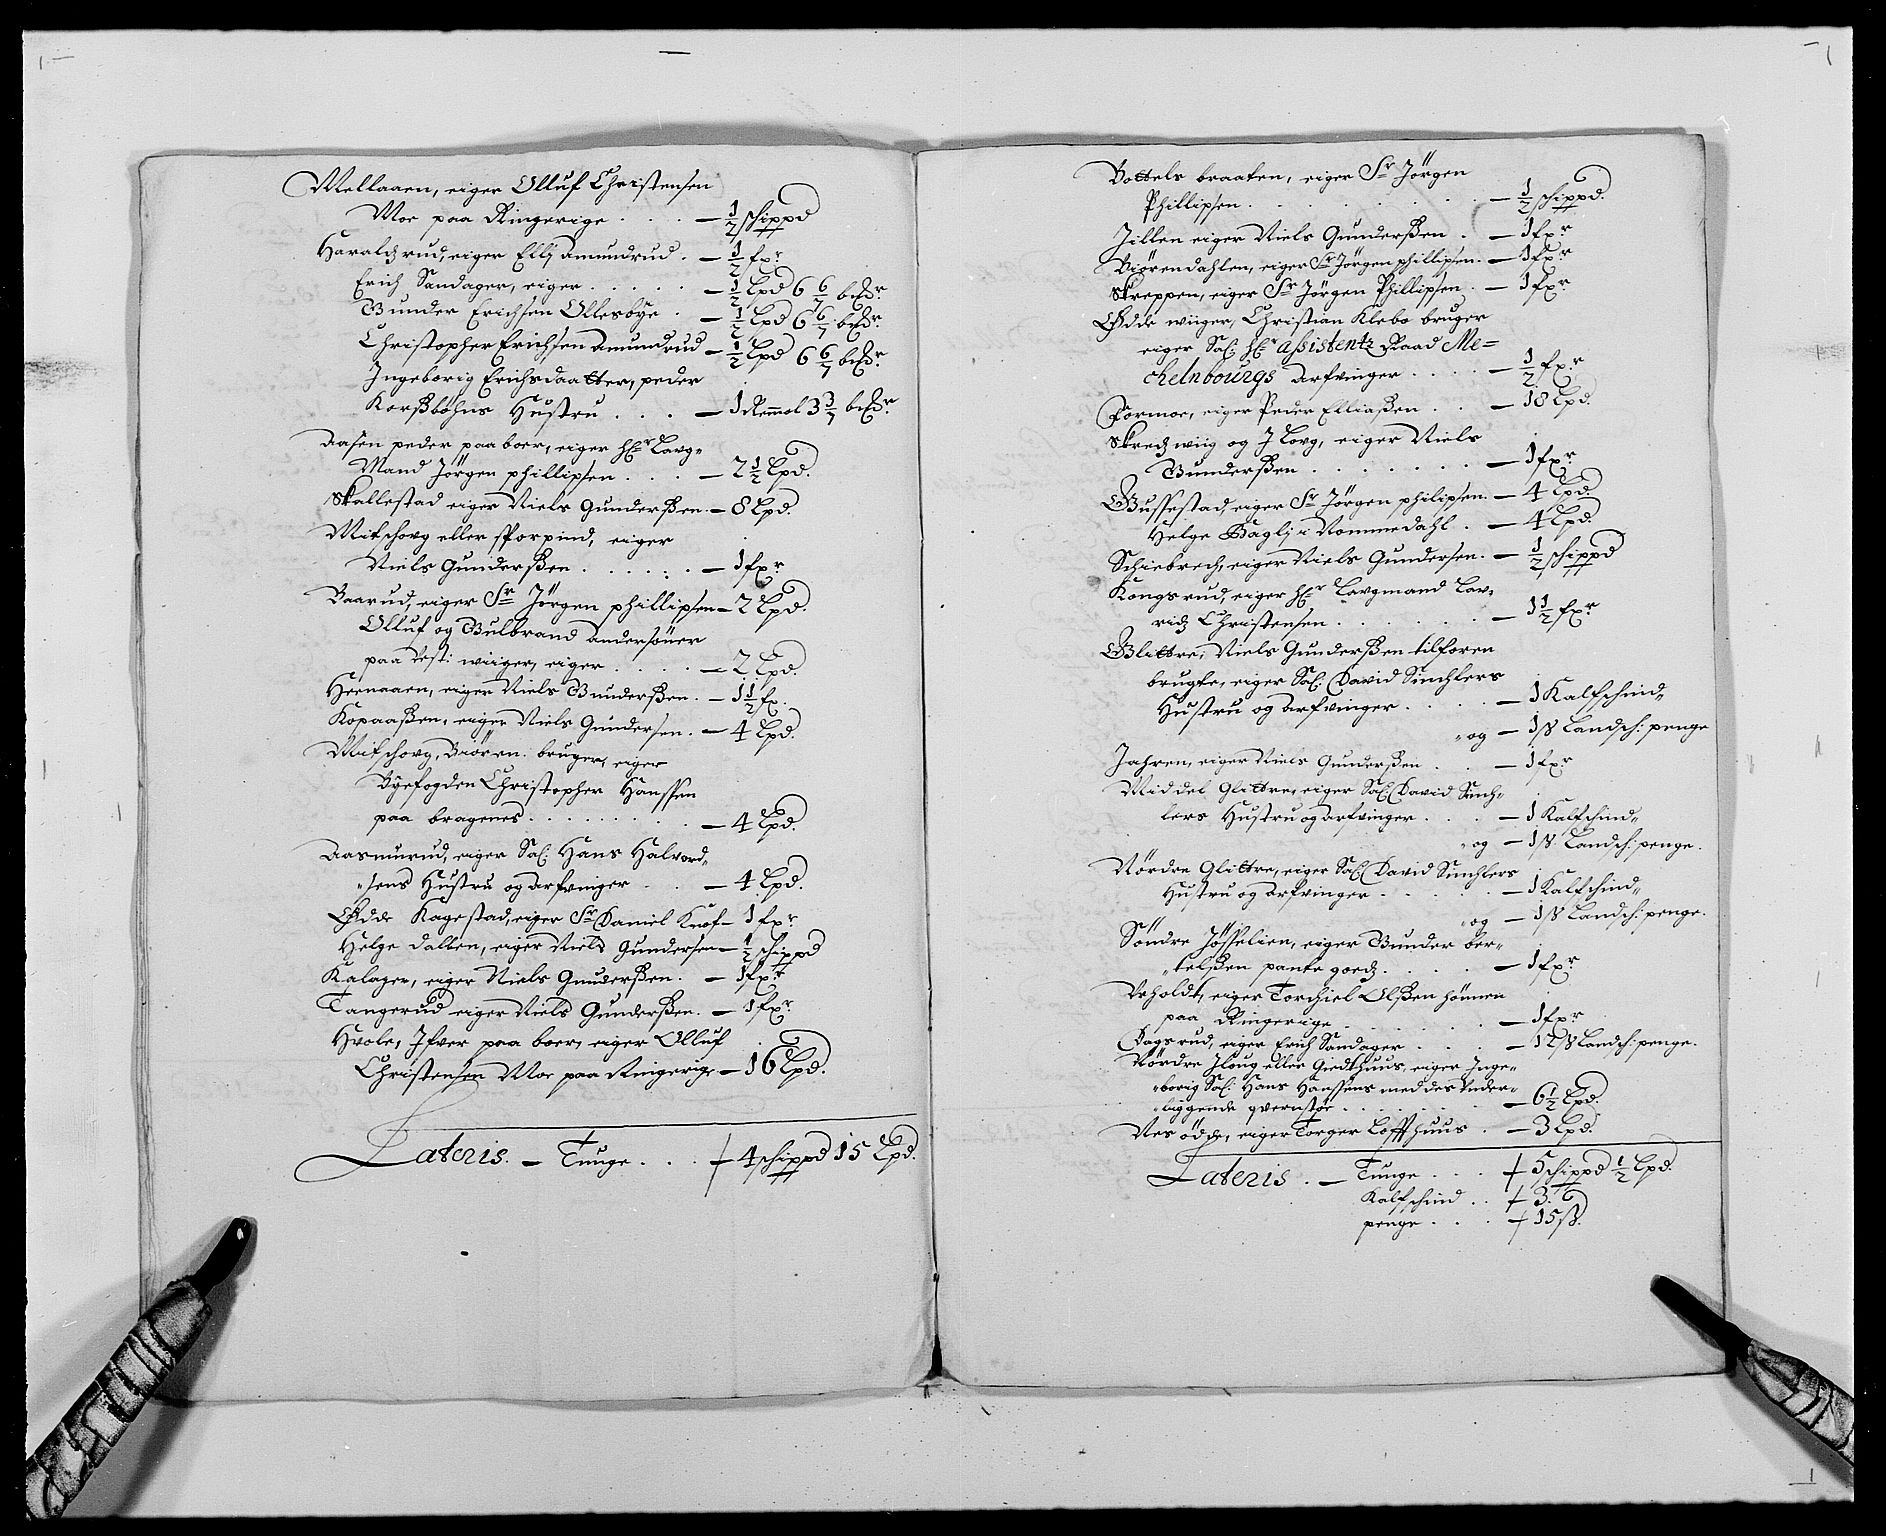 Mellaaen, eiger Olluf Christensen
Moe paa Ringerige . . . — ½ schippd
Haraldzrud, eiger Elli Amundrud . — ½ fxr
Erich Sandager, eiger . . . . . — ½ Lpd 6 6/7 bcßr.
Gunder Erichsen Ollesbye . — ½ Lpd 6 6/7 bcßr.
Christopher Erichsen Amundrud — ½ Lpd 6 6/7 bcßr.
Ingeborig Erichsdaatter, peder
Korßbøhns Hustru . . . — 1 Remmol 3 3/7 bcßr.
Aasen peder paaboer, eiger Hr Laug„
Mand Jörgen phillipsen . . . — 2½ Lpd.
Skallestad eiger Niels Gunderßen — 8 Lpd.
Mitschoug eller Storpind, eiger
Niels Gunderßen . . . . . . — 1 fxr
Baarud, eiger Sr Jörgen phillipsen — 2 Lpd.
Olluf og Gulbrand Andersöner
paa Vest: wiiger, eiger . . . . — 2 Lpd.
Heenaaen, eiger Niels Gunderßen. — 1½ fx.
Kopaaßen, eiger Niels Gundersen. — 4 Lpd.
Mitschoug, Biören bruger, eiger
Byefogden Christopher Hanssen
paa bragenes . . . . . . . . — 4 Lpd.
Aasmurud, eiger Sal: Hans Halvord„
„sens Hustru og arfvinger . . — 4 Lpd.
Ødde Kagestad, eiger Sr Daniel Knof — 1 fxr
Helge dalben, eiger Niels Gundersen — ½ schippd
Kalager, eiger Niels Gunderßen. — 1 fxr
Tangerud eiger Niels Gunderßen. — 1 fxr
Hvole, Ifver paaboer, eiger Olluf
Christensen Moe paa Ringerige — 16 Lpd.
Lateris. — Tunge . . . ┼ 4 schippd 15 Lpd.
Bottels braaten, eiger Sr Jörgen
Phillipsen . . . . . . . . . — ½ schippd.
Jillen eiger Niels Gunderßen . — 1 fxr
Biörendahlen, eiger Sr Jörgen phillipsen. — 1 fxr
Skreppen, eiger Sr Jörgen Phillipsen . — 1 fxr
Ødde wiiger, Christian Klebo bruger
eiger Sal: Hr Assistentz Raad Me=
chelnbourgs Arfvinger . . . . — ½ fxr
Formoe, eiger Peder Elliaßen . . — 18 Lpd.
Skredz wiig og Jloug, eiger Niels
Gunderßen . . . . . . . — 1 fxr
Gussestad, eiger Sr Jörgen philipsen. — 4 Lpd.
Helge Haglj i Nommedahl . — 4 Lpd.
Schiebrech, eiger Niels Gundersen. — ½ schippd
Kongsrud, eiger Hr Laugmand Lau„
ridz Christensen . . . . . . — 1½ fxr
Glittre, Niels Gunderßen tilforen
brugte, eiger Sal: David Sinchlers
Hustru og Arfvinger . . . . — 1 Kalfschind„
„og — 1 ß Landsch: penge
Jahren, eiger Niels Gunderßen . . — 1 fxr
Middel Glittre, eiger Sal: David Sinch„
lers Hustru og Arfvinger . . . — 1 Kalfschind„
„og — 1 ß Landsch: penge.
Nördre Glittre, eiger Sal: David Sinchlers
Hustru og Arfvinger . . . . . — 1 Kalfschind„
„og — 1 ß Landsch: penge.
Söndre Jösselien, eiger Gunder ber„
„telßen pante goedz . . . . — 1 fxr
Veholdt, eiger Torchiel Olßen Hönnen
paa Ringerige . . . . . . — 1 fxr
Dagsrud, eiger Erich Sandager . . . — 12 ß Landsch: penge.
Nördre Jloug eller Giedthuus, eiger Inge„
„borig Sal: Hans Hanssens med des Under„
„liggende qvernstøe . . . . . — 6½ Lpd.
Nes ödde, eiger Torger Loffthuus . — 3 Lpd.
Lateris . — Tunge . . . ┼ 5 schippd ½ Lpd.
Kalfschind . . ┼ 3.
penge . . . ┼ 15 ß.